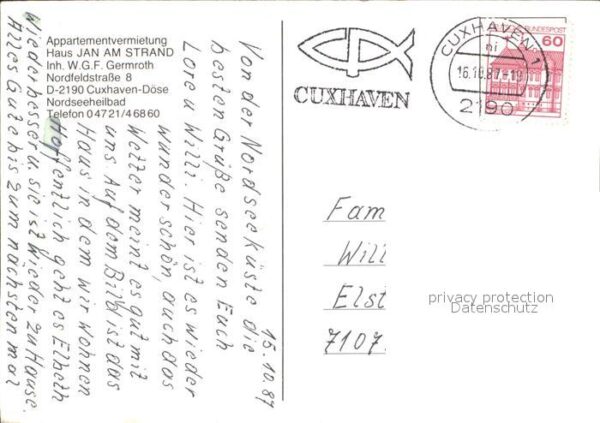 Appartementvermietung
Haus JAN AM STRAND
Inh. W.G.F. Germroth
Nordfeldstraße 8
D-2190 Cuxhaven-Döse
Nordseeheilbad
Telefon 04721/46860
15.10.87
Von der Nordseeküste die
besten Grüße senden Euch
Lore u Willi. Hier ist es wieder
wunderschön, auch das
Wetter meint es gut mit
uns. Auf dem Bild ist das
Haus in dem wir wohnen
Hoffentlich geht es Elbeth
wieder besser u. sie ist wieder zu Hause.
Alles Gute bis zum nächsten mal
CUXHAVEN
CUXHAVEN 1
ni
16.10.87-19
2190
BUNDESPOST
60
Fam
Will
Elst
7107
privacy protection
Datenschutz